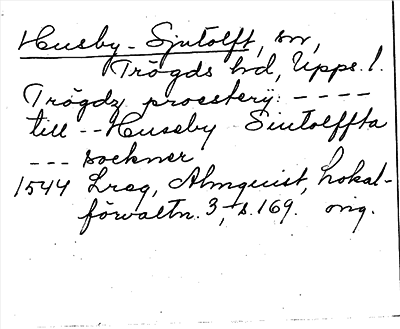 Husby-Sjutolft, sn,
Trögds hd, Upps. l.
Trögdz prossterij: ----
till -- Husseby Siutolffta
--- sockner
1544 Lreg, Almquist, Lokal-
förvaltn. 3, s. 169. orig.